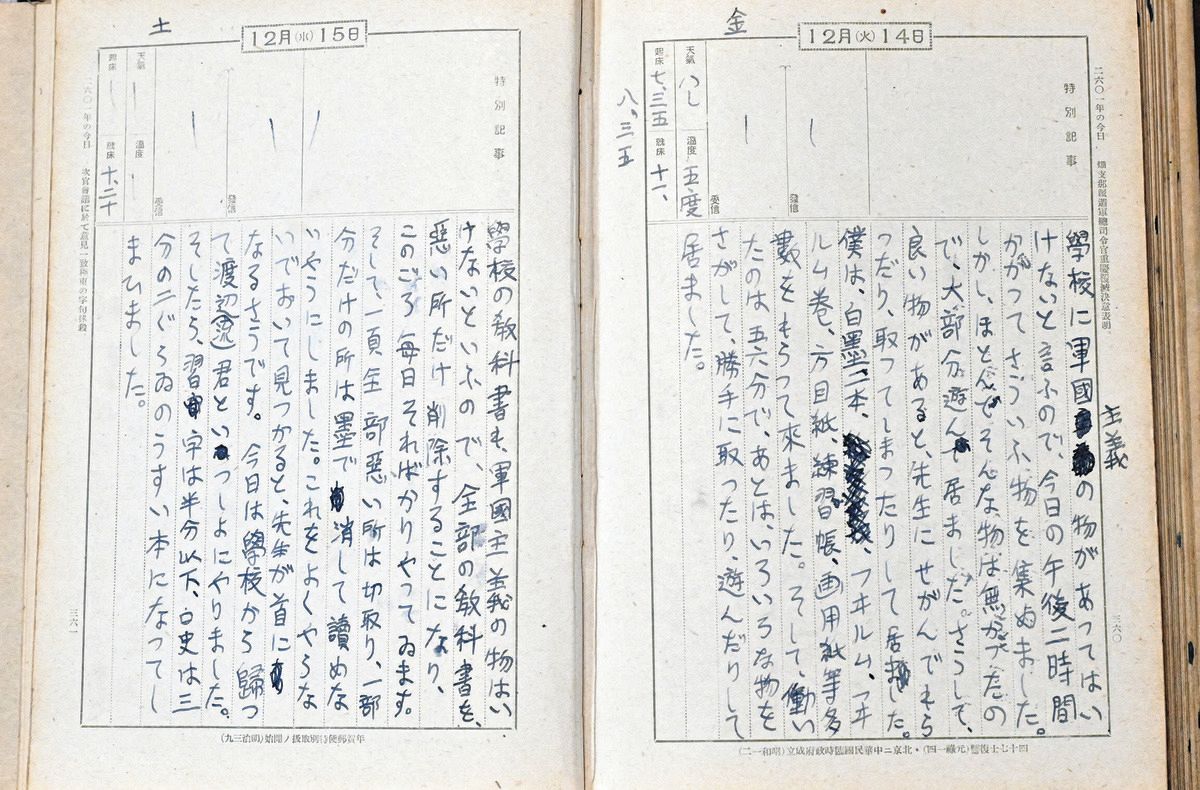 金
12月(火)14日
二六〇一年の今日
特別記事
發信
受信
天氣
ハレ
溫度
五度
起床
七、三五
就床
十一、
八、三五
主義
學校に軍國の物があつてはい
けないと言ふので、今日の午後二時間
かかつてさういふ物を集めました。
しかし、ほとんでそんな物は無かつたの
で、大部分遊んで居ました。さうして、
良い物があると、先生にせがんでもら
つたり、取つてしまつたりして居ました。
僕は、白墨二本、フヰルム、フヰ
ルム巻、方目紙、練習帳、画用紙等多
數をもらつて來ました。そして、働い
たのは五六分で、あとは、いろいろな物を
さがして、勝手に取つたり、遊んだりして
居ました。
三六〇
四十七士復讐(元祿一四)・北京ニ中華民國臨時政府成立(昭和一二)
土
12月(水)15日
二六〇一年の今日
特別記事
發信
受信
天氣
溫度
起床
就床
十、二十
學校の教科書も、軍國主義の物はい
けないといふので、全部の教科書を、
惡い所だけ削除することになり、
このごろ毎日そればかりやつてゐます。
そして、一頁全部惡い所は切取り、一部
分だけの所は墨で消して讀めな
いやうにしました。これをよくやらな
いでおいて見つかると、先生が首に
なるさうです。今日は學校から歸つ
て渡辺君といつしよにやりました。
そしたら、習字は半分以下、國史は三
分の二ぐらゐのうすい本になつてし
まひました。
三六一
年賀郵便特別取扱ノ開始(明治三九)